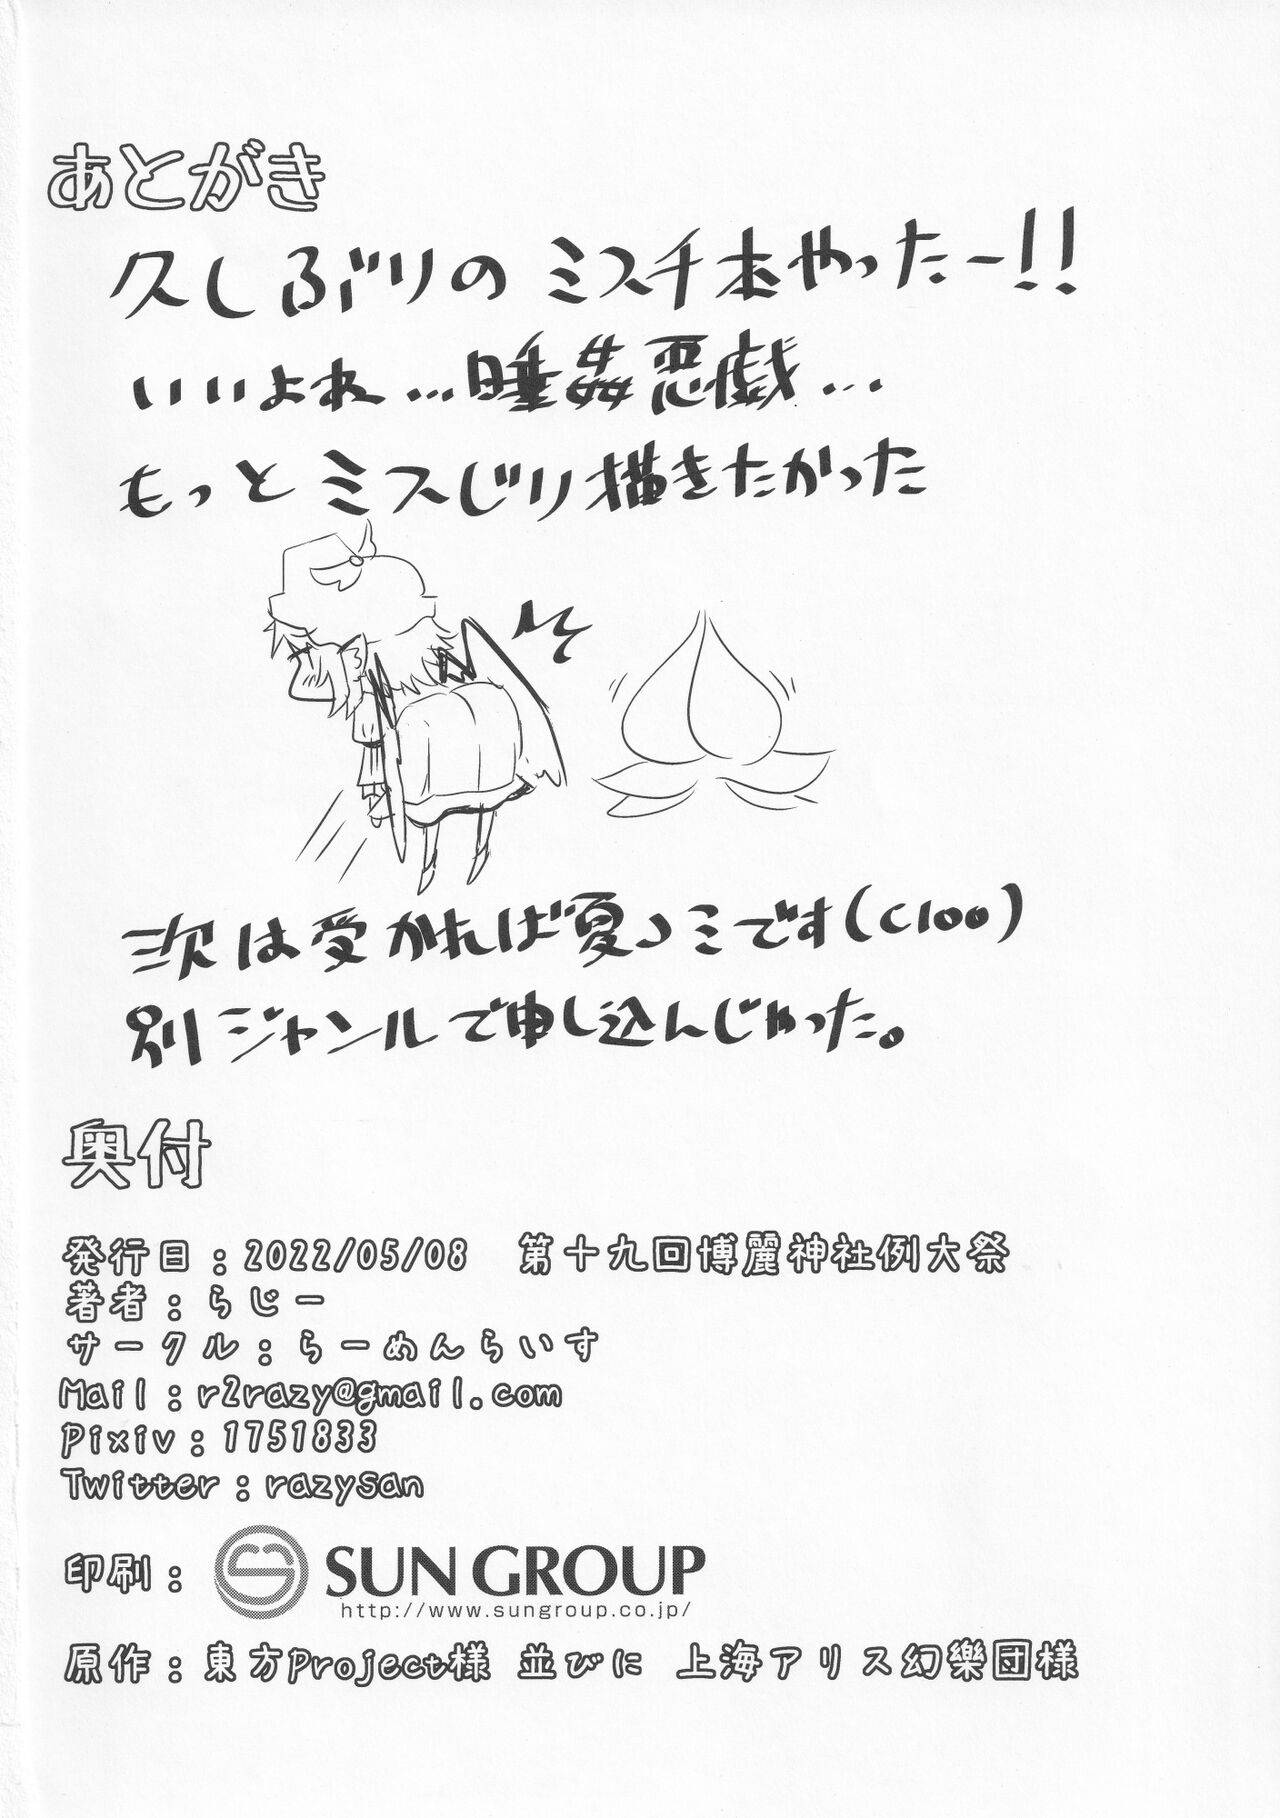 あとがき
久しぶりのミスチ本やったー!!
いいよね…睡姦悪戯…
もっとミスじり描きたかった
次は受かれば夏コミです(C100)
別ジャンルで申し込んじゃった。
奥付
発行日：2022/05/08　第十九回博麗神社例大祭
著者：らじー
サークル：らーめんらいす
Mail：r2razy@gmail.com
Pixiv：1751833
Twitter：razysan
印刷： SUN GROUP
http://www.sungroup.co.jp/
原作：東方Project様 並びに 上海アリス幻樂団様